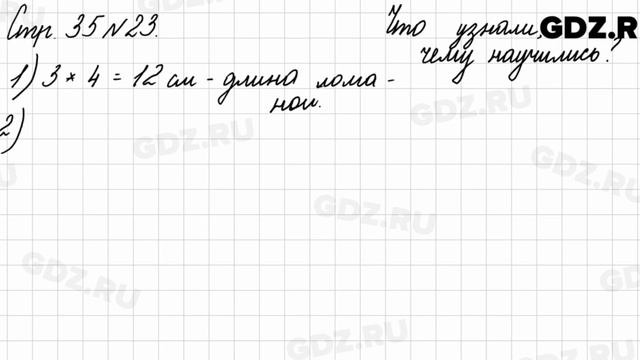 Стр. 35 №23.
Что узнали,
чему научились?
1) 3 * 4 = 12 см - длина лома -
ной.
2)
GDZ.R
GDZ.RU
GDZ.RU
GDZ.RU
GDZ.RU
GDZ.RU
GDZ.RU